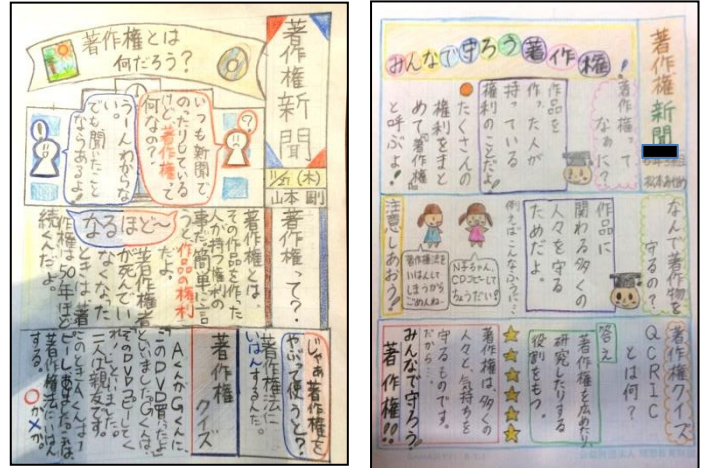 著作権新聞
11/27(木)
山本 剛
著作権とは
何だろう?
いつも新聞で
のったりしている
けど著作権って
何なの?
うーんわからな
い。
でも聞いたこと
ならあるよ!
著作権って?
著作権とは、
その作品を作った
人が持つ権利の
事だ。簡単に言
うと作品の権利
だよ。
なるほど〜
著作権者
が死んでい
なくなった
ときは、著
作権は50年ほど
続くんだよ。
じゃあ著作権を
やぶって使うと?
著作権法に
いはんするんだ。
著作権
クイズ
AくんがGくんに、
このDVD買ったよ
といいました。Gくんは、
そのDVDコピーしてく
れ。といいました。
二人は親友です。
このときAくんは、コ
ピーしあました。これは、
著作権法にいはん
する。
○か×か。
著作権新聞
みんなで守ろう著作権!
著作権って
なあに?
作品を
作った人が
持っている
権利のことだよ!
たくさんの
権利をまと
めて「著作権」
と呼ぶよ!
なんで著作物を
守るの?
作品に
関わる多くの
人々を守る
ためだよ。
例えばこんなふうに…
N子ちゃん、
CDコピーして
ちょうだい!
著作権法を
いはんして
しまうから
ごめんね…
注意しあおう!
著作権クイズ
QCRIC
とは何?
答え
著作権を広めたり、
研究したりする
役割をもつ。
著作権は、多くの
人々と、気持ちを
守るものです。
だから…、
みんなで守ろう!
著作権!!